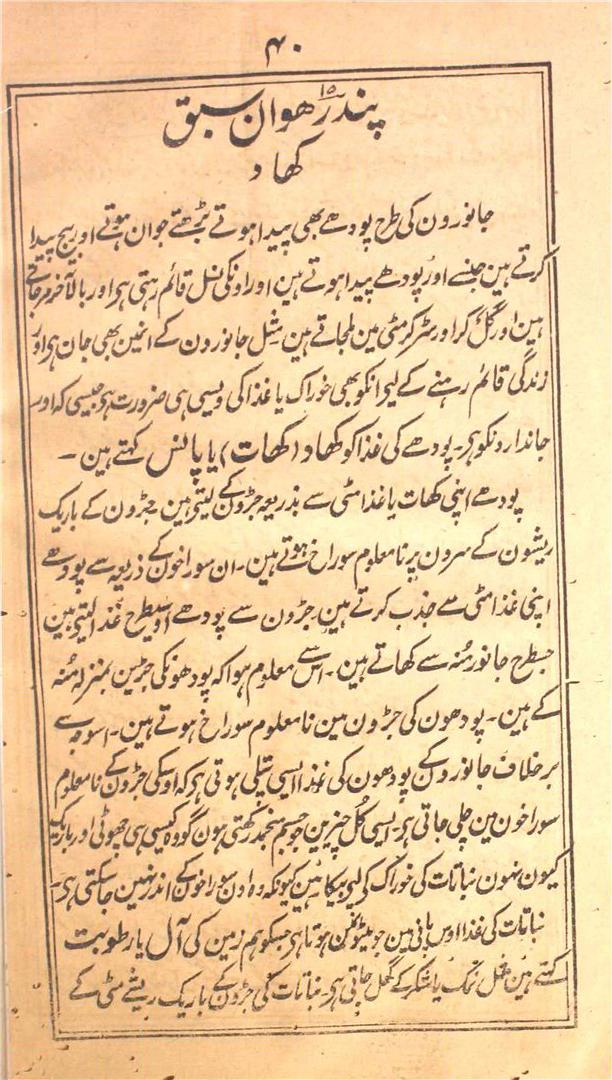 ۴۰
پندرھوان ۱۵ سبق
کھاد
جانورون کی طرح پودھے بھی پیدا ہوتے بڑھتے جوان ہوتے اور بیج پیدا
کرتے ہین جنسے اور پودھے پیدا ہوتے ہین اور اونکی نسل قائم رہتی ہی اور بالآخر مرجاتے
ہین اور گل کر اور سڑ کر مٹی مین ملجاتے ہین مثل جانورون کے انمین بھی جان ہی اور
زندگی قائم رہنے کے لیے انکو بھی خوراک یا غذا کی ویسی ہی ضرورت ہی جیسی کہ اور
جاندارونکو ہی۔ پودھے کی غذا کو کھاد (کھات) یا پانس کہتے ہین۔
پودھے اپنی کھات یا غذا مٹی سے بذریعہ جڑون کے لیتے ہین۔ جڑون کے باریک
ریشون کے سرون پر نامعلوم سوراخ ہوتے ہین۔ ان سوراخون کے ذریعہ سے پودھے
اپنی غذا مٹی سے جذب کرتے ہین۔ جڑون سے پودھے اوسیطرح غذا لیتے ہین
جسطرح جانور مُنہ سے کھاتے ہین۔ اس سے معلوم ہوا کہ پودھونکی جڑین بمنزلہ مُنہ
کے ہین۔ پودھون کی جڑون مین نامعلوم سوراخ ہوتے ہین۔ اسوجہ سے
برخلاف جانورون کے پودھون کی غذا ایسی پتلی ہوتی ہی کہ اوسکی جڑون کے نامعلوم
سوراخون مین چلی جاتی ہی۔ ایسی کُل چیزین جو جسم منجمد رکھتی ہون گو وہ کیسی ہی چھوٹی اور باریک
کیون نہون نباتات کی خوراک کی لیے بیکار ہین کیونکہ وہ اون سوراخون کے اندر نہین جاسکتی ہی۔
نباتات کی غذا اوس پانی مین جو مٹی مین ہوتا ہی جسکو ہم زمین کی آل یا رطوبت
کہتے ہین مثل نمک یا شکر کے گھل جاتی ہی۔ نباتات کی جڑون کے باریک ریشے مٹی کے